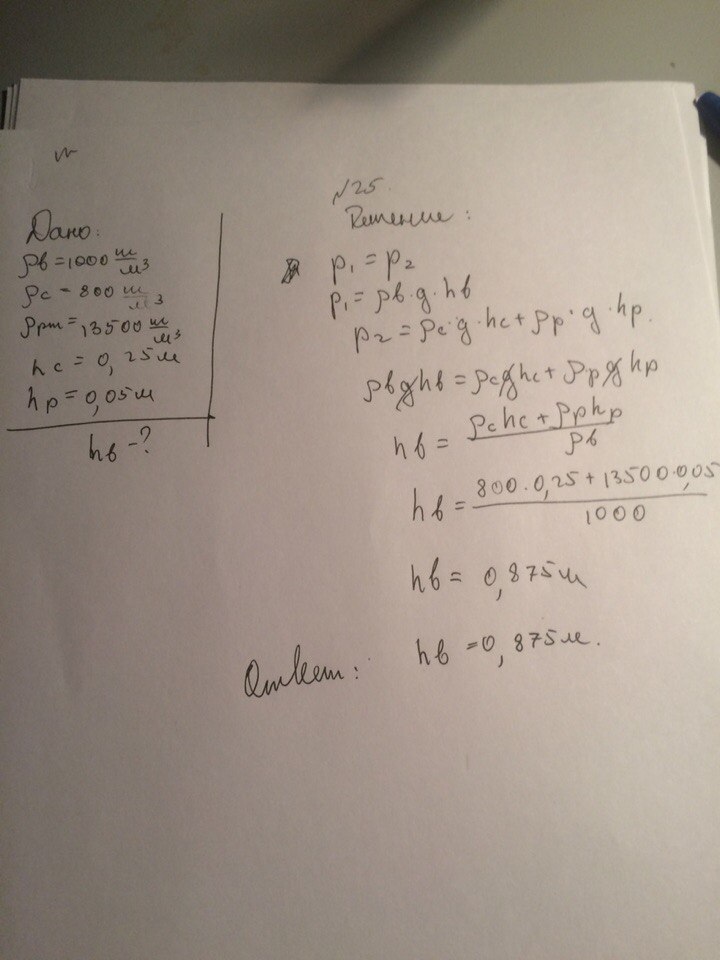 N25.
Дано:
ρв = 1000 т/м3
ρс = 800 т/м3
ρрт = 13500 т/м3
hс = 0,25м
hр = 0,05м
hв -?
Решение:
p1 = p2
p1 = ρв·g·hв
p2 = ρс·g·hс + ρр·g·hр.
ρвghв = ρсghс + ρрghр
hв = ρсhс + ρрhр / ρв
hв = 800·0,25 + 13500·0,05 / 1000
hв = 0,875м
Ответ: hв = 0,875м.